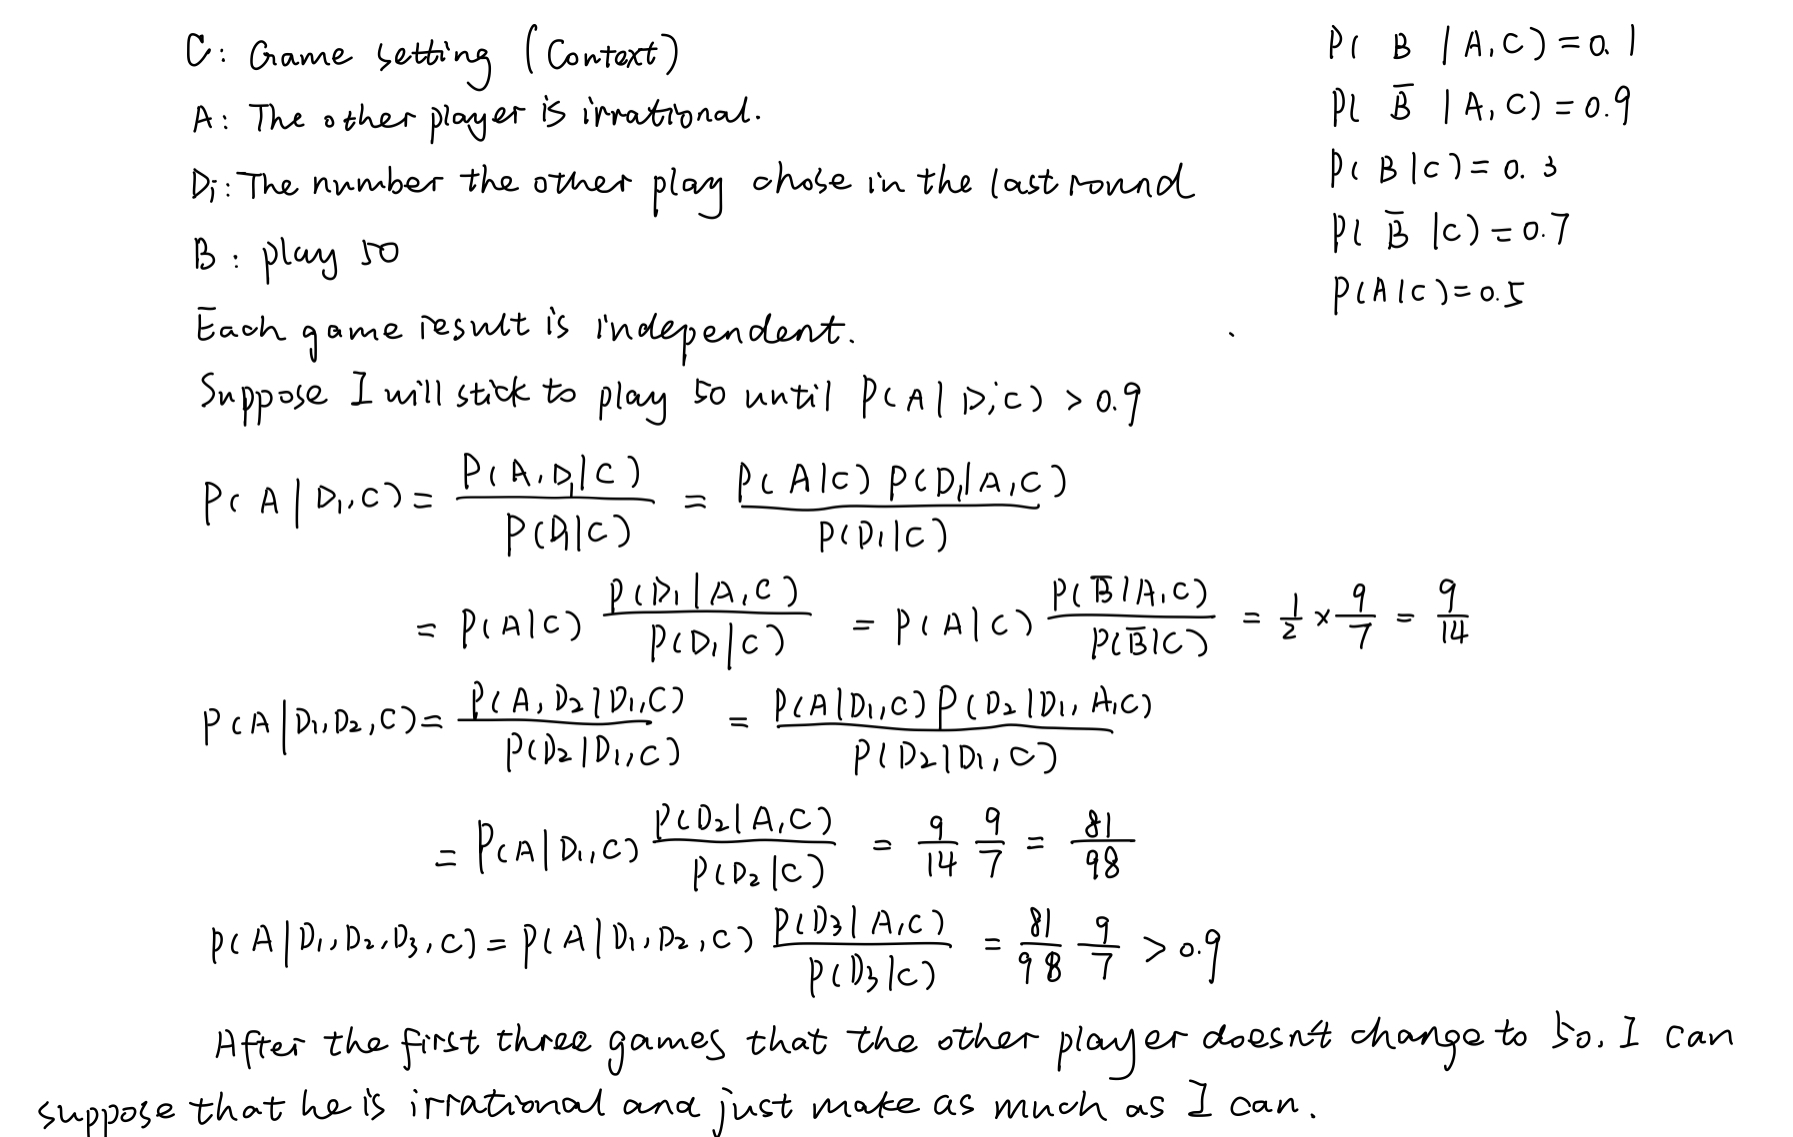 C: Game setting (Context)
A: The other player is irrational.
Di: The number the other play chose in the last round
B: play 50
Each game result is independent.
Suppose I will stick to play 50 until P(A|D,C) > 0.9
P(B|A,C)=0.1
P(B̅|A,C)=0.9
P(B|C)=0.3
P(B̅|C)=0.7
P(A|C)=0.5
P(A|D₁,C) = P(A,D₁|C) / P(D₁|C) = P(A|C) P(D₁|A,C) / P(D₁|C)
= P(A|C) P(D₁|A,C) / P(D₁|C) = P(A|C) P(B̅|A,C) / P(B̅|C) = 1/2 × 9/7 = 9/14
P(A|D₁,D₂,C) = P(A,D₂|D₁,C) / P(D₂|D₁,C) = P(A|D₁,C) P(D₂|D₁,A,C) / P(D₂|D₁,C)
= P(A|D₁,C) P(D₂|A,C) / P(D₂|C) = 9/14 9/7 = 81/98
P(A|D₁,D₂,D₃,C) = P(A|D₁,D₂,C) P(D₃|A,C) / P(D₃|C) = 81/98 9/7 > 0.9
After the first three games that the other player doesn't change to 50, I can
suppose that he is irrational and just make as much as I can.